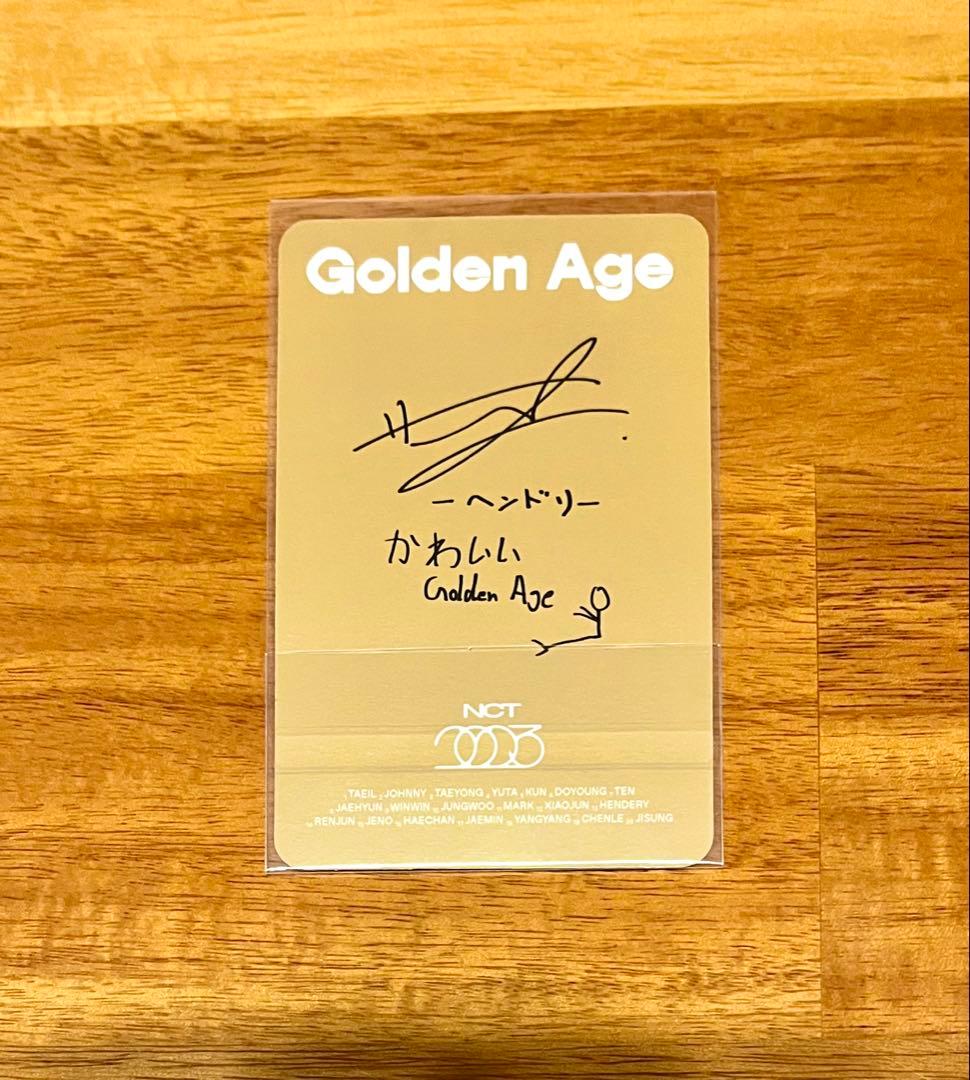 Golden Age
ーヘンドリー
かわいい
Golden Age
NCT
2023
1 TAEIL 2 JOHNNY 3 TAEYONG 4 YUTA 5 KUN 6 DOYOUNG 7 TEN
8 JAEHYUN 9 WINWIN 10 JUNGWOO 11 MARK 12 XIAOJUN 13 HENDERY
14 RENJUN 15 JENO 16 HAECHAN 17 JAEMIN 18 YANGYANG 19 CHENLE 20 JISUNG